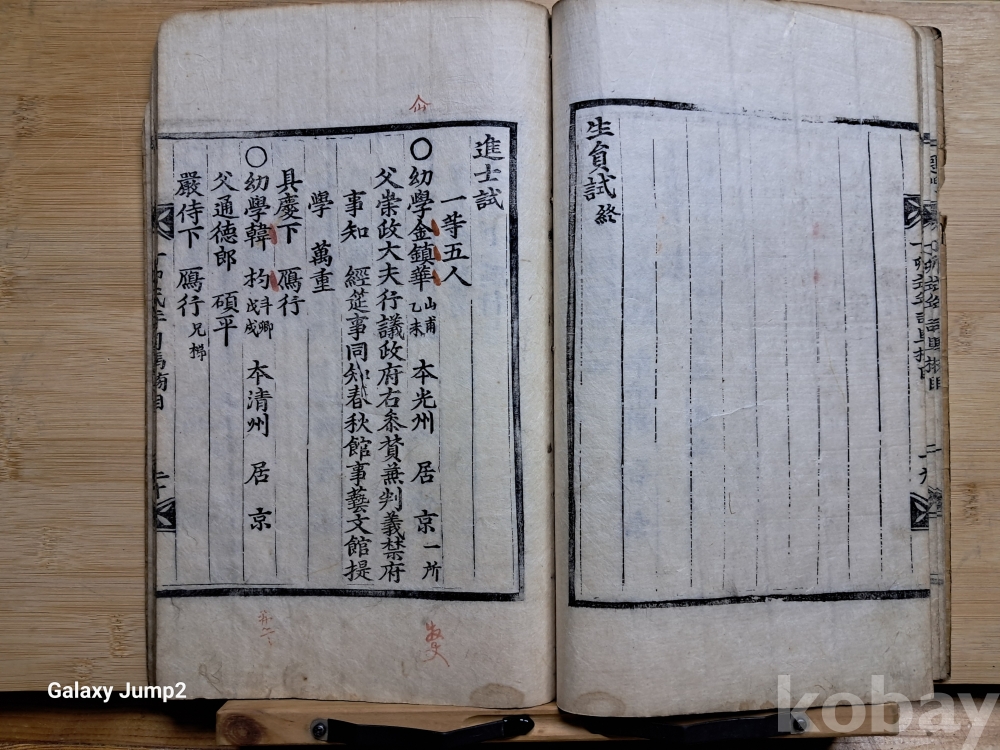 生負試 終
進士試
一等五人
〇幼學金鎮華 山甫 乙未 本光州 居京 一所
父崇政大夫行議政府右叅賛兼判義禁府
事知 經筵事同知春秋館事藝文館提
學 萬重
具慶下 鴈行
〇幼學韓 㣿 斗卿 戊戌 本清州 居京
父通德郎 碩平
嚴侍下 鴈行 兄梯
Galaxy Jump2
kobay